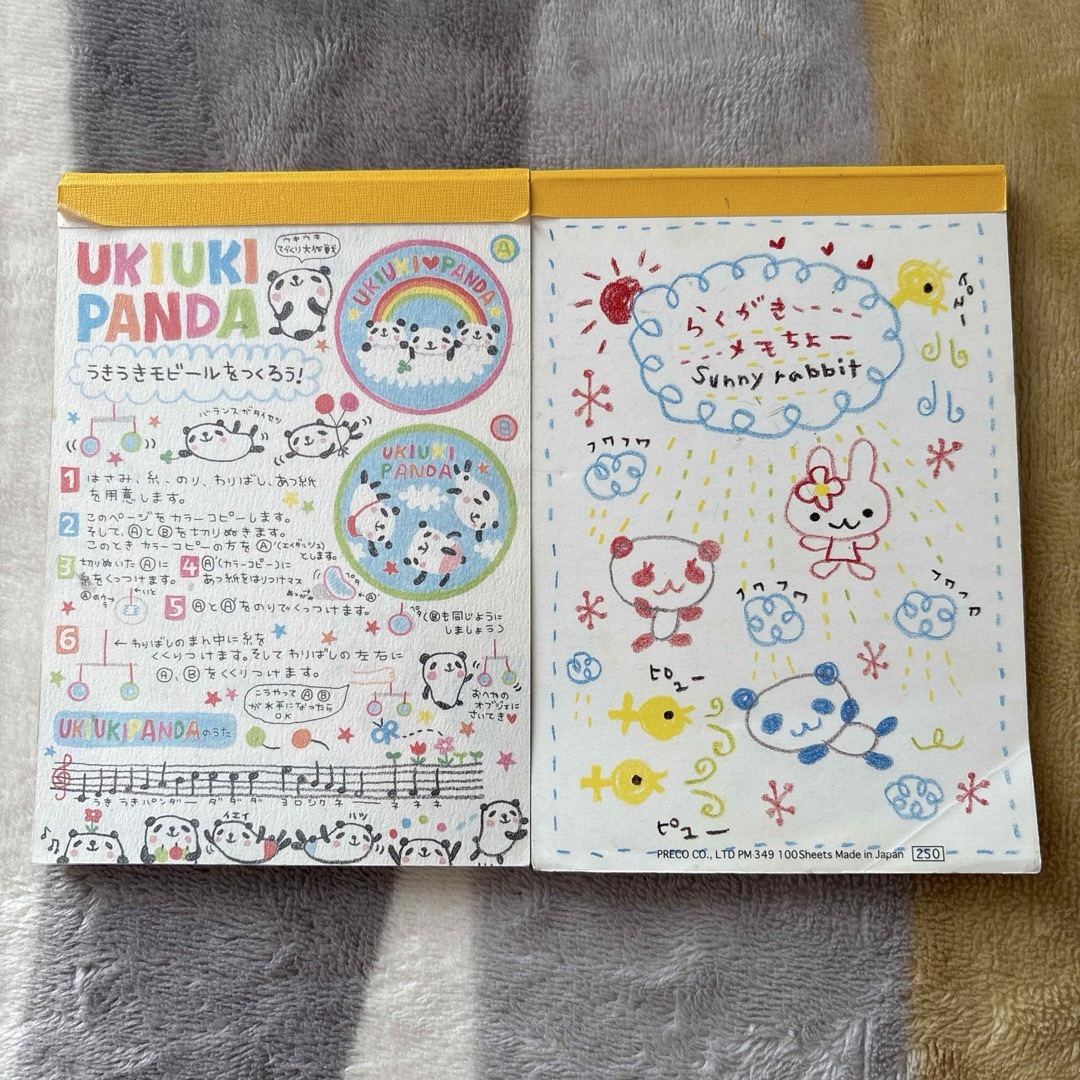 UKIUKI
PANDA
ウキウキ
てづくり大作戦
UKIUKI♥PANDA
A
うきうきモビールをつくろう!
バランスがタイセツ
B
UKIUKI
PANDA
1 はさみ、糸、のり、わりばし、あつ紙
を用意します。
2 このページをカラーコピーします。
そして、ⒶとⒷを切りぬきます。
このとき カラーコピーの方をⒶ'(エイダッシュ)
とします。
3 切りぬいたⒶに
糸をくっつけます。
Ⓐのウラ
←いと
4 Ⓐ'(カラーコピー)に
あつ紙をはりつけマス
ペタ
あつがみ
←Ⓐ'
5 ⒶとⒶ'をのりでくっつけます。
ペタ
(Ⓑも同じように
しましょう)
6 ←わりばしのまん中に糸を
くくりつけます。そしてわりばしの左右に
Ⓐ、Ⓑをくくりつけます。
こうやってⒶⒷ
が水平になったら
OK
おへやの
オブジェに
さいてき♥
UKIUKIPANDAのうた
うきうきパンダー ダダダ ヨロシクネー ネネネ
イエイ
ハッ
らくがき----
---メモちょー
Sunny rabbit
フワフワ
フワフワ
フワフワ
ピュー
ピュー
PRECO CO., LTD PM 349 100Sheets Made in Japan 250